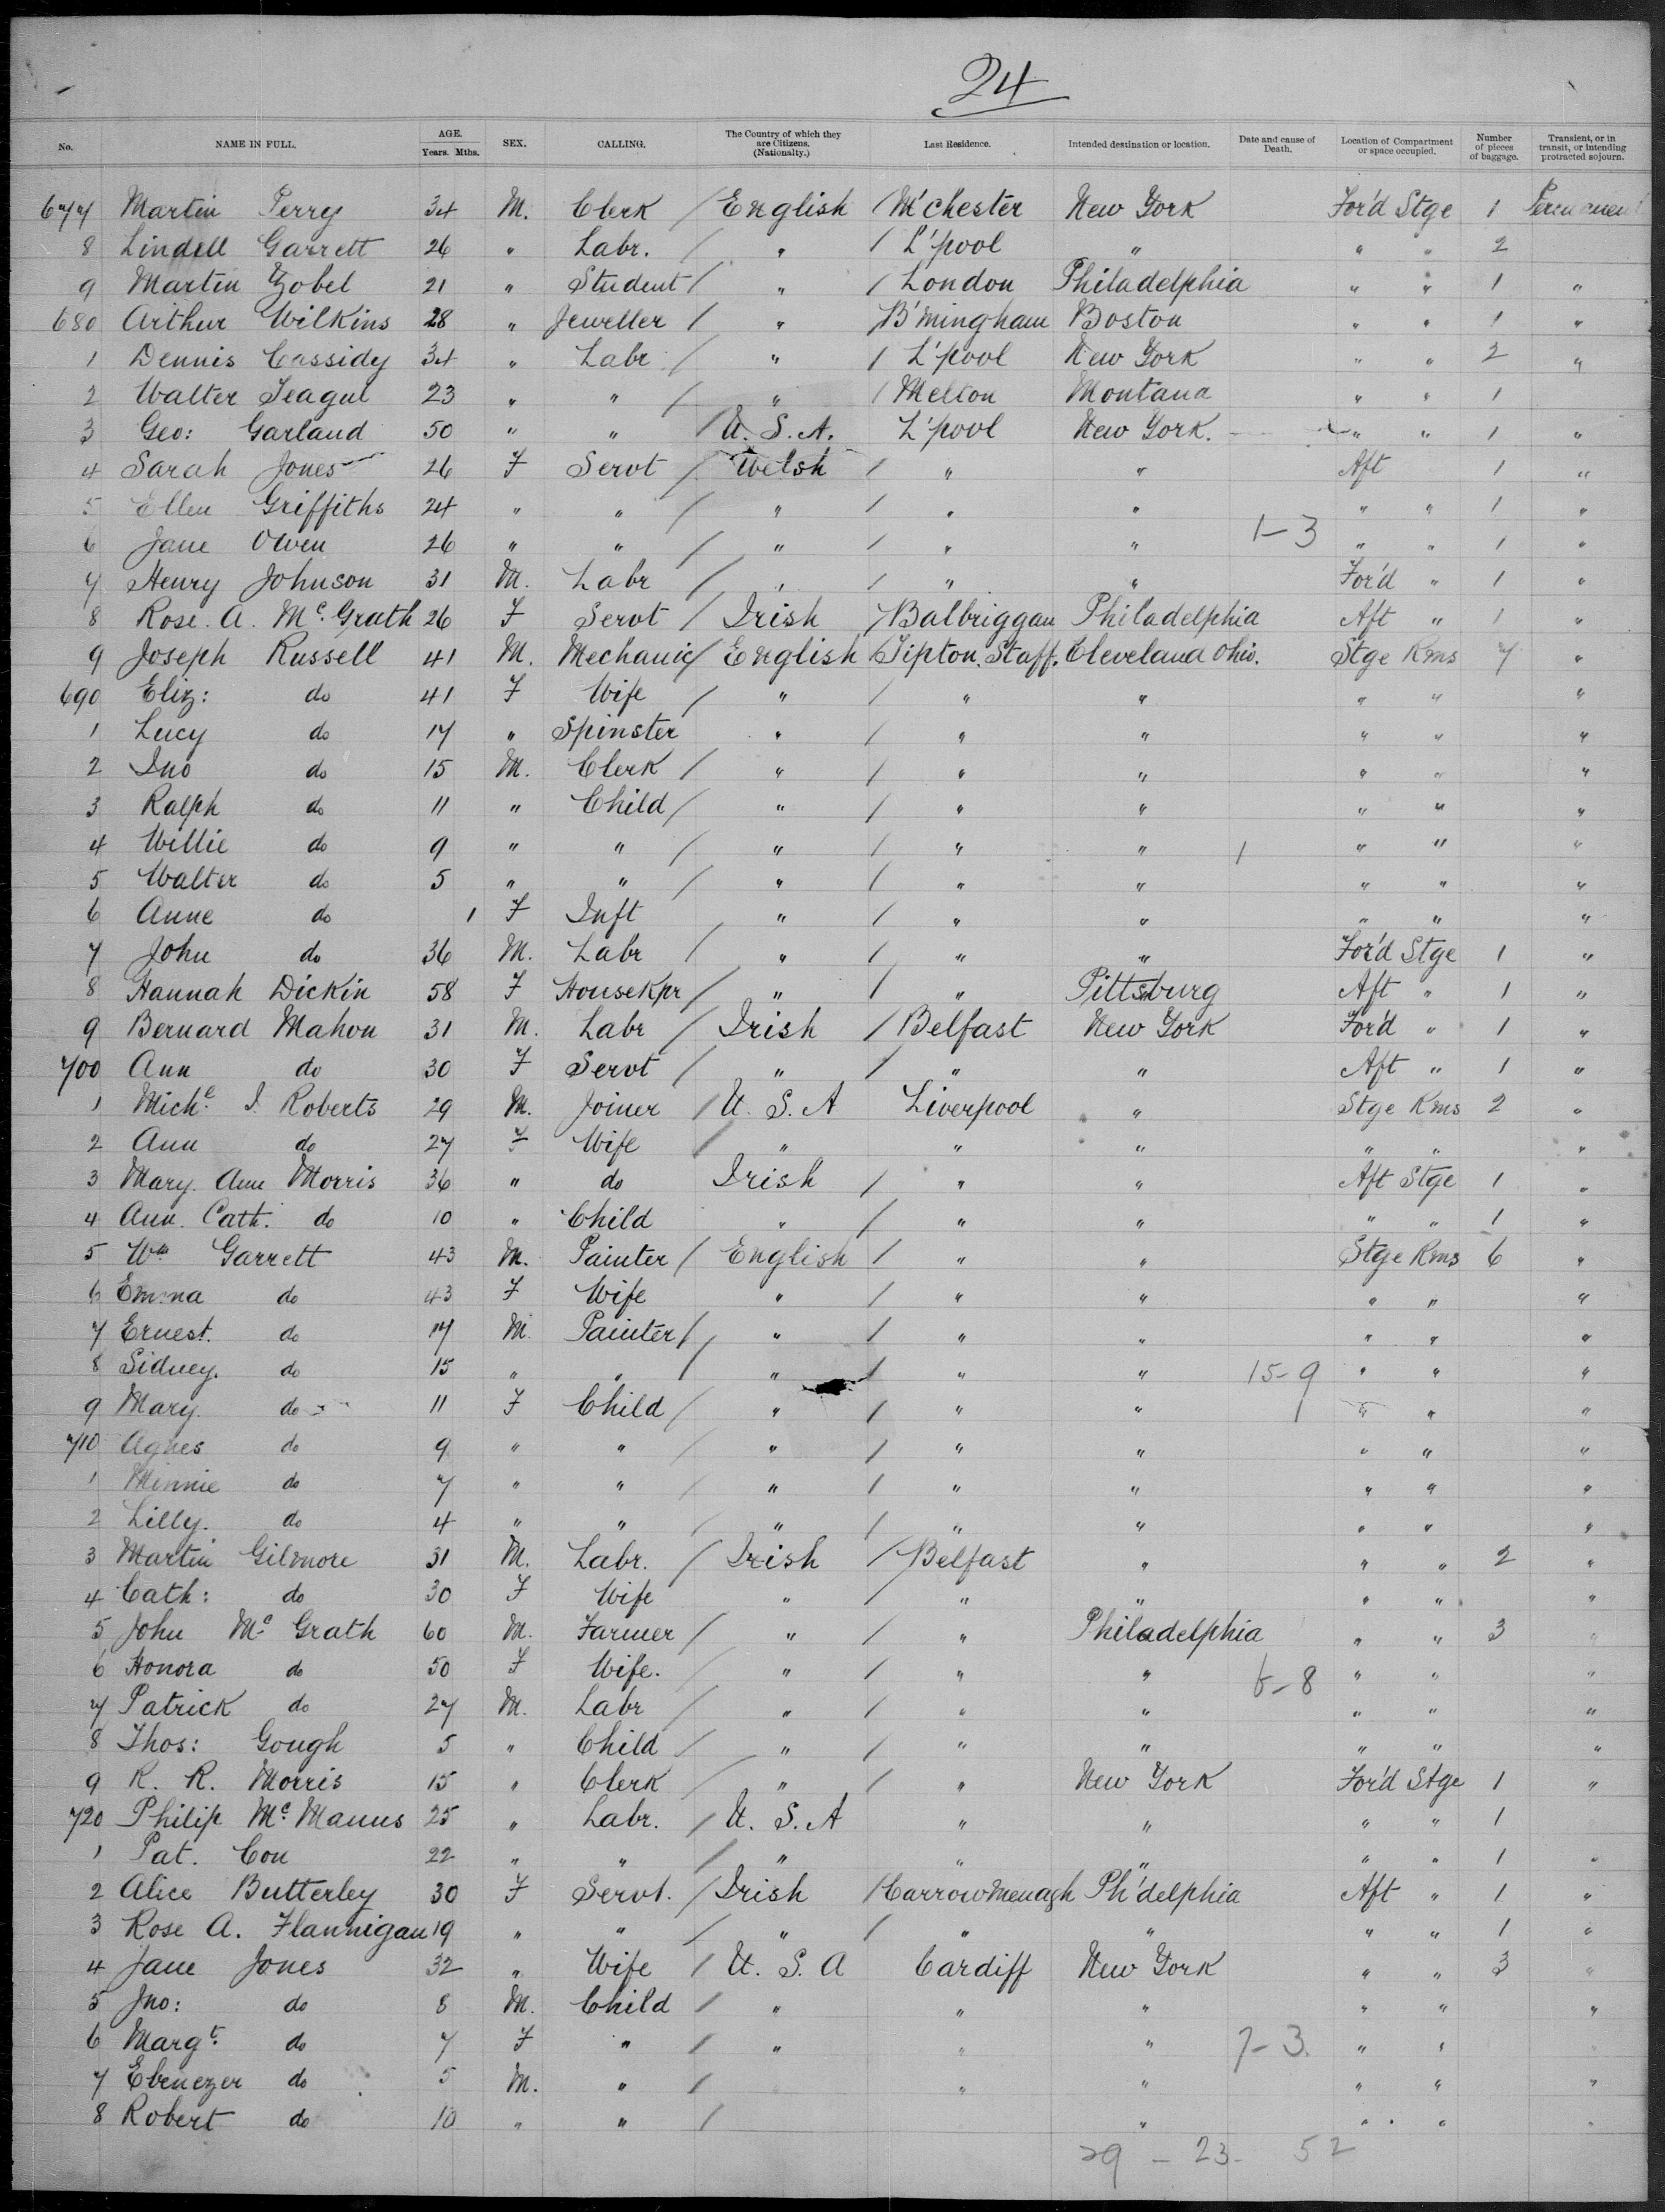 24
No. NAME IN FULL. AGE. Years. Mths. SEX. CALLING. The Country of which they are Citizens. (Nationalty.) Last Residence. Intended destination or location. Date and cause of Death. Location of Compartment or space occupied. Number of pieces of baggage. Transient, or in transit, or intending protracted sojourn.
677 Martin Perry 34 M. Clerk / English / M'chester New York For'd Stge 1 Permanent
8 Lindell Garrett 26 " Labr. / " / L'pool " " " 2
9 Martin Zobel 21 " Student / " / London Philadelphia " " 1 "
680 Arthur Wilkins 28 " Jeweller / " / B'mingham Boston " " 1 "
1 Dennis Cassidy 34 " Labr / " / L'pool New York " " 2 "
2 Walter Teague 23 " " / " / Melton Montana " " 1
3 Geo: Garland 50 " " / U. S. A. L'pool New York. " " 1 "
4 Sarah Jones 26 F Servt / Welsh / " " Aft 1 "
5 Ellen Griffiths 24 " " / " / " " " " 1 "
6 Jane Owen 26 " " / " / " " 1-3 " " 1 "
7 Henry Johnson 31 M. Labr / " / " " For'd " 1 "
8 Rose. A. Mc. Grath 26 F Servt / Irish / Balbriggan Philadelphia Aft " 1 "
9 Joseph Russell 41 M. Mechanic / English / Tipton. Staff. Cleveland Ohio. Stge Rms 7 "
690 Eliz: do 41 F Wife / " / " " " " "
1 Lucy do 17 " Spinster " / " " " " "
2 Jno do 15 M. Clerk / " / " " " " "
3 Ralph do 11 " Child / " / " " " " "
4 Willie do 9 " " / " / " " 1 " " "
5 Walter do 5 " " / " / " " " " "
6 Anne do 1 F Inft " / " " " " "
7 John do 36 M. Labr / " / " " For'd Stge 1 "
8 Hannah Dickin 58 F Housekpr / " / " Pittsburg Aft " 1 "
9 Bernard Mahon 31 M. Labr / Irish / Belfast New York For'd " 1 "
700 Ann do 30 F Servt / " / " " Aft " 1 "
1 Michl. J. Roberts 29 M. Joiner / U. S. A Liverpool " Stge Rms 2 "
2 Ann do 27 F Wife / " " " " " "
3 Mary. Ann Morris 36 " do Irish / " " Aft Stge 1 "
4 Ann. Cath. do 10 " Child " / " " " " 1 "
5 Wm Garrett 43 M. Painter / English / " " Stge Rms 6 "
6 Emma do 43 F Wife " / " " " " "
7 Ernest. do 17 M. Painter / " / " " " " "
8 Sidney. do 15 " " / " / " " 15-9 " " "
9 Mary. do 11 F Child / " / " " " " "
710 Agnes do 9 " " / " / " " " " "
1 Minnie do 7 " " / " / " " " " "
2 Lilly. do 4 " " / " / " " " " "
3 Martin Gilmore 31 M. Labr. / Irish / Belfast " " " 2 "
4 Cath: do 30 F Wife " / " " " " "
5 John Mc Grath 60 M. Farmer / " / " Philadelphia " " 3 "
6 Honora do 50 F Wife. / " / " " 6-8 " " "
7 Patrick do 27 M. Labr / " / " " " " "
8 Thos: Gough 5 " Child / " / " " " " "
9 R. R. Morris 15 " Clerk / " / " New York For'd Stge 1 "
720 Philip Mc. Manus 25 " Labr. / U. S. A " " " " 1
1 Pat. Con 22 " " / " " " " " 1 "
2 Alice Butterley 30 F Servt. / Irish / Carrowmenagh Ph'delphia Aft " 1 "
3 Rose A. Flannigan 19 " " / " / " " " " 1 "
4 Jane Jones 32 " Wife / U. S. A Cardiff New York " " 3 "
5 Jno: do 8 M. Child / " " " " " "
6 Margt. do 7 F " / " " " 7-3. " "
7 Ebenezer do 5 M. " / " " " " "
8 Robert do 10 " " / " " " "
29 - 23 - 52